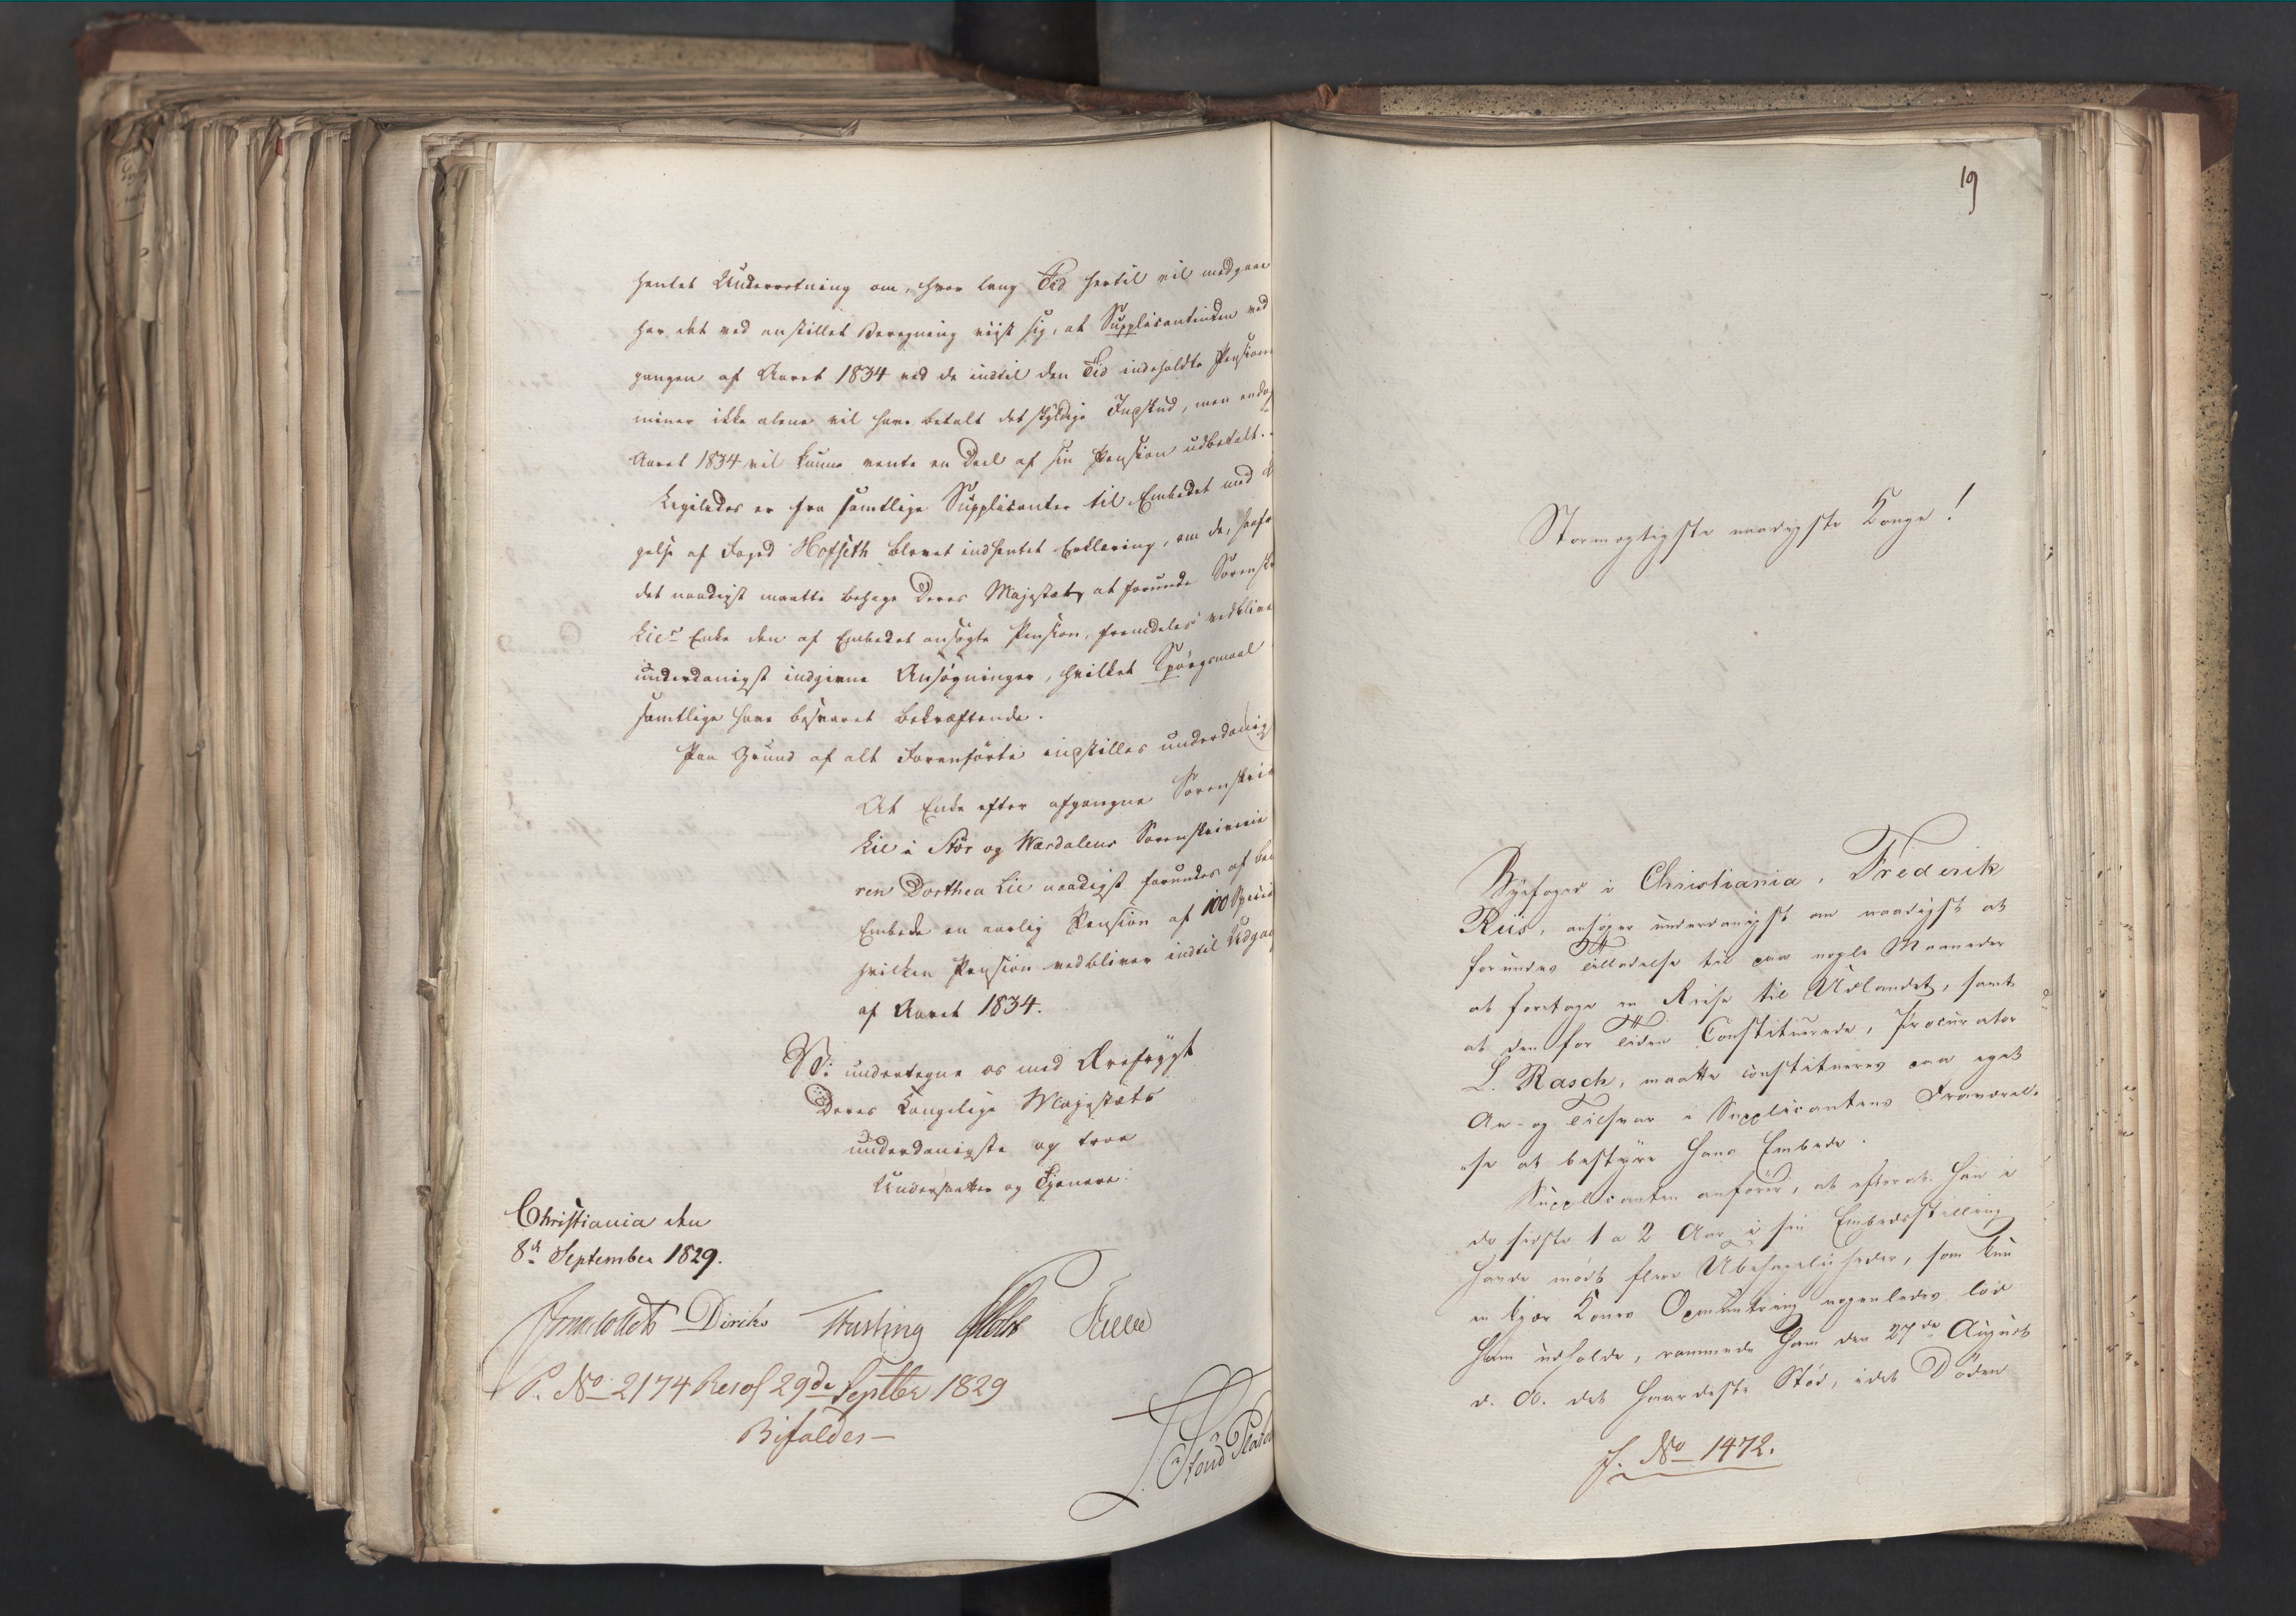 hentet Underretning om, hvor lang Tid hertil vil medgaae
har det ved anstillet Beregning viist sig, at Supplicantinden ved
gangen af Aaret 1834 ved de indtil den Tid indeholdte Pension
miner ikke alene vil have betalt det skyldige Indskud, men endog
Aaret 1834 vil kunne vente en Deel af sin Pension udbetalt.
Ligeledes er fra samtlige Supplicanter til Embedet med
gelse af Foged Hofseth blevet indhentet Erklæring, om de, saafr
det naadigst maatte behage Deres Majestæt, at forunde Sorensk
Lies Enke den af Embedet ansøgte Pension, fremdeles vedblive
underdanigst indgivne Ansøgninger, hvilket Spørgsmaal
samtlige have besvaret bekræftende.
Paa Grund af alt Foranførte indstilles underdanig
At Enke efter afgangne Sorenskri
Lie i Stør og Værdalens Sorenskriverie
ren Dorthea Lie naadigst forundes af be
Embede en aarlig Pension af 100 Specie
hvilken Pension vedbliver indtil Udgan
af Aaret 1834.
Vi undertegne os med Ærefrygt
Deres Kongelige Majestæts
underdanigste og troe
Undersaatter og Tjenere.
Christiania den
8de September 1829.
Diriks
P. No 2174 Resol 29de Septbr 1829
Bifaldes —
19
Stormægtigste naadigste Konge!
Byefoged i Christiania, Frederik
Riis, ansøger underdanigst om naadigst at
forundes Tilladelse til paa nogle Maaneder
at foretage en Reise til Udlandet, samt
at den for Tiden Constituerede, Procurator
L. Rasch, maatte constitueres paa eget
An- og Tilsvar i Supplicantens Fraværel-
-se at bestyre hans Embede.
Supplicanten anfører, at efterat han i
de første 1 a 2 Aar i sin Embedsstilling
havde mødt flere Ubehageligheder, som kun
en kjær Kones Opmuntring nogenledes lod
ham udholde, rammede ham den 27de August
d. A. det haardeste Stød, idet Døden
J. No 1472.